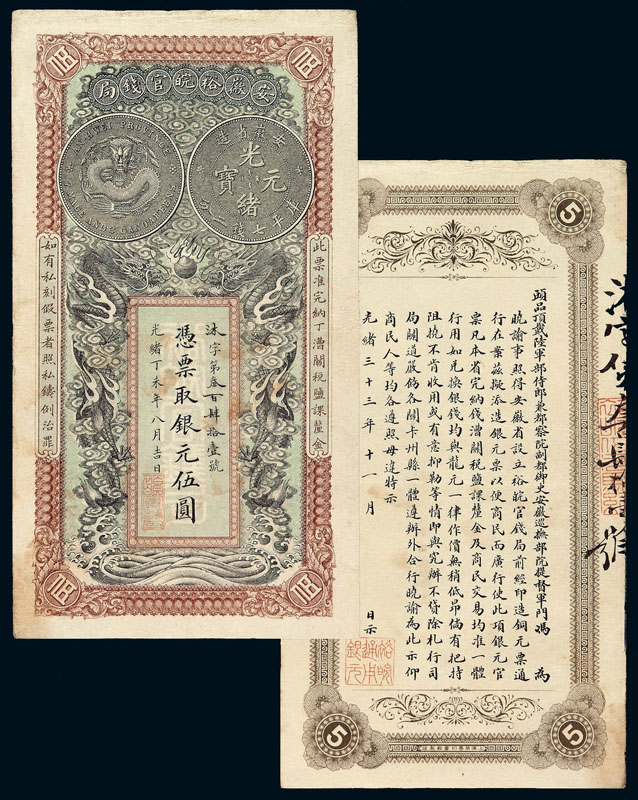 安徽裕皖官錢局
ANHWEI PROVINCE
安徽省造
光緒元寶
庫平七錢二分
此票准完納丁漕關稅鹽課釐金
沐字第叁百肆拾壹號
憑票取銀元伍圓
光緒丁未年八月吉日
如有私刻假票者照私鑄例治罪
伍
伍
伍
伍
5
5
5
頭品頂戴陸軍部侍郎兼都察院副都御史安徽巡撫部院提督軍門馮 為
曉諭事照得安徽省設立裕皖官錢局前經印造銅元票通
行在案茲擬添造銀元票以便商民而廣行使此項銀元官
票凡本省完納錢漕關稅鹽課釐金及商民交易均准一體
行用如兌換銀錢均與龍元一律作價無稍低昂倘有把持
阻撓不肯收用或有意抑勒等情即與究辦不貸除札行司
局關道嚴飭各關卡州縣一體遵辦外合行曉諭為此示仰
商民人等均各遵照毋違特示
光緒三十三年十一月 日示
裕皖
通用
銀元